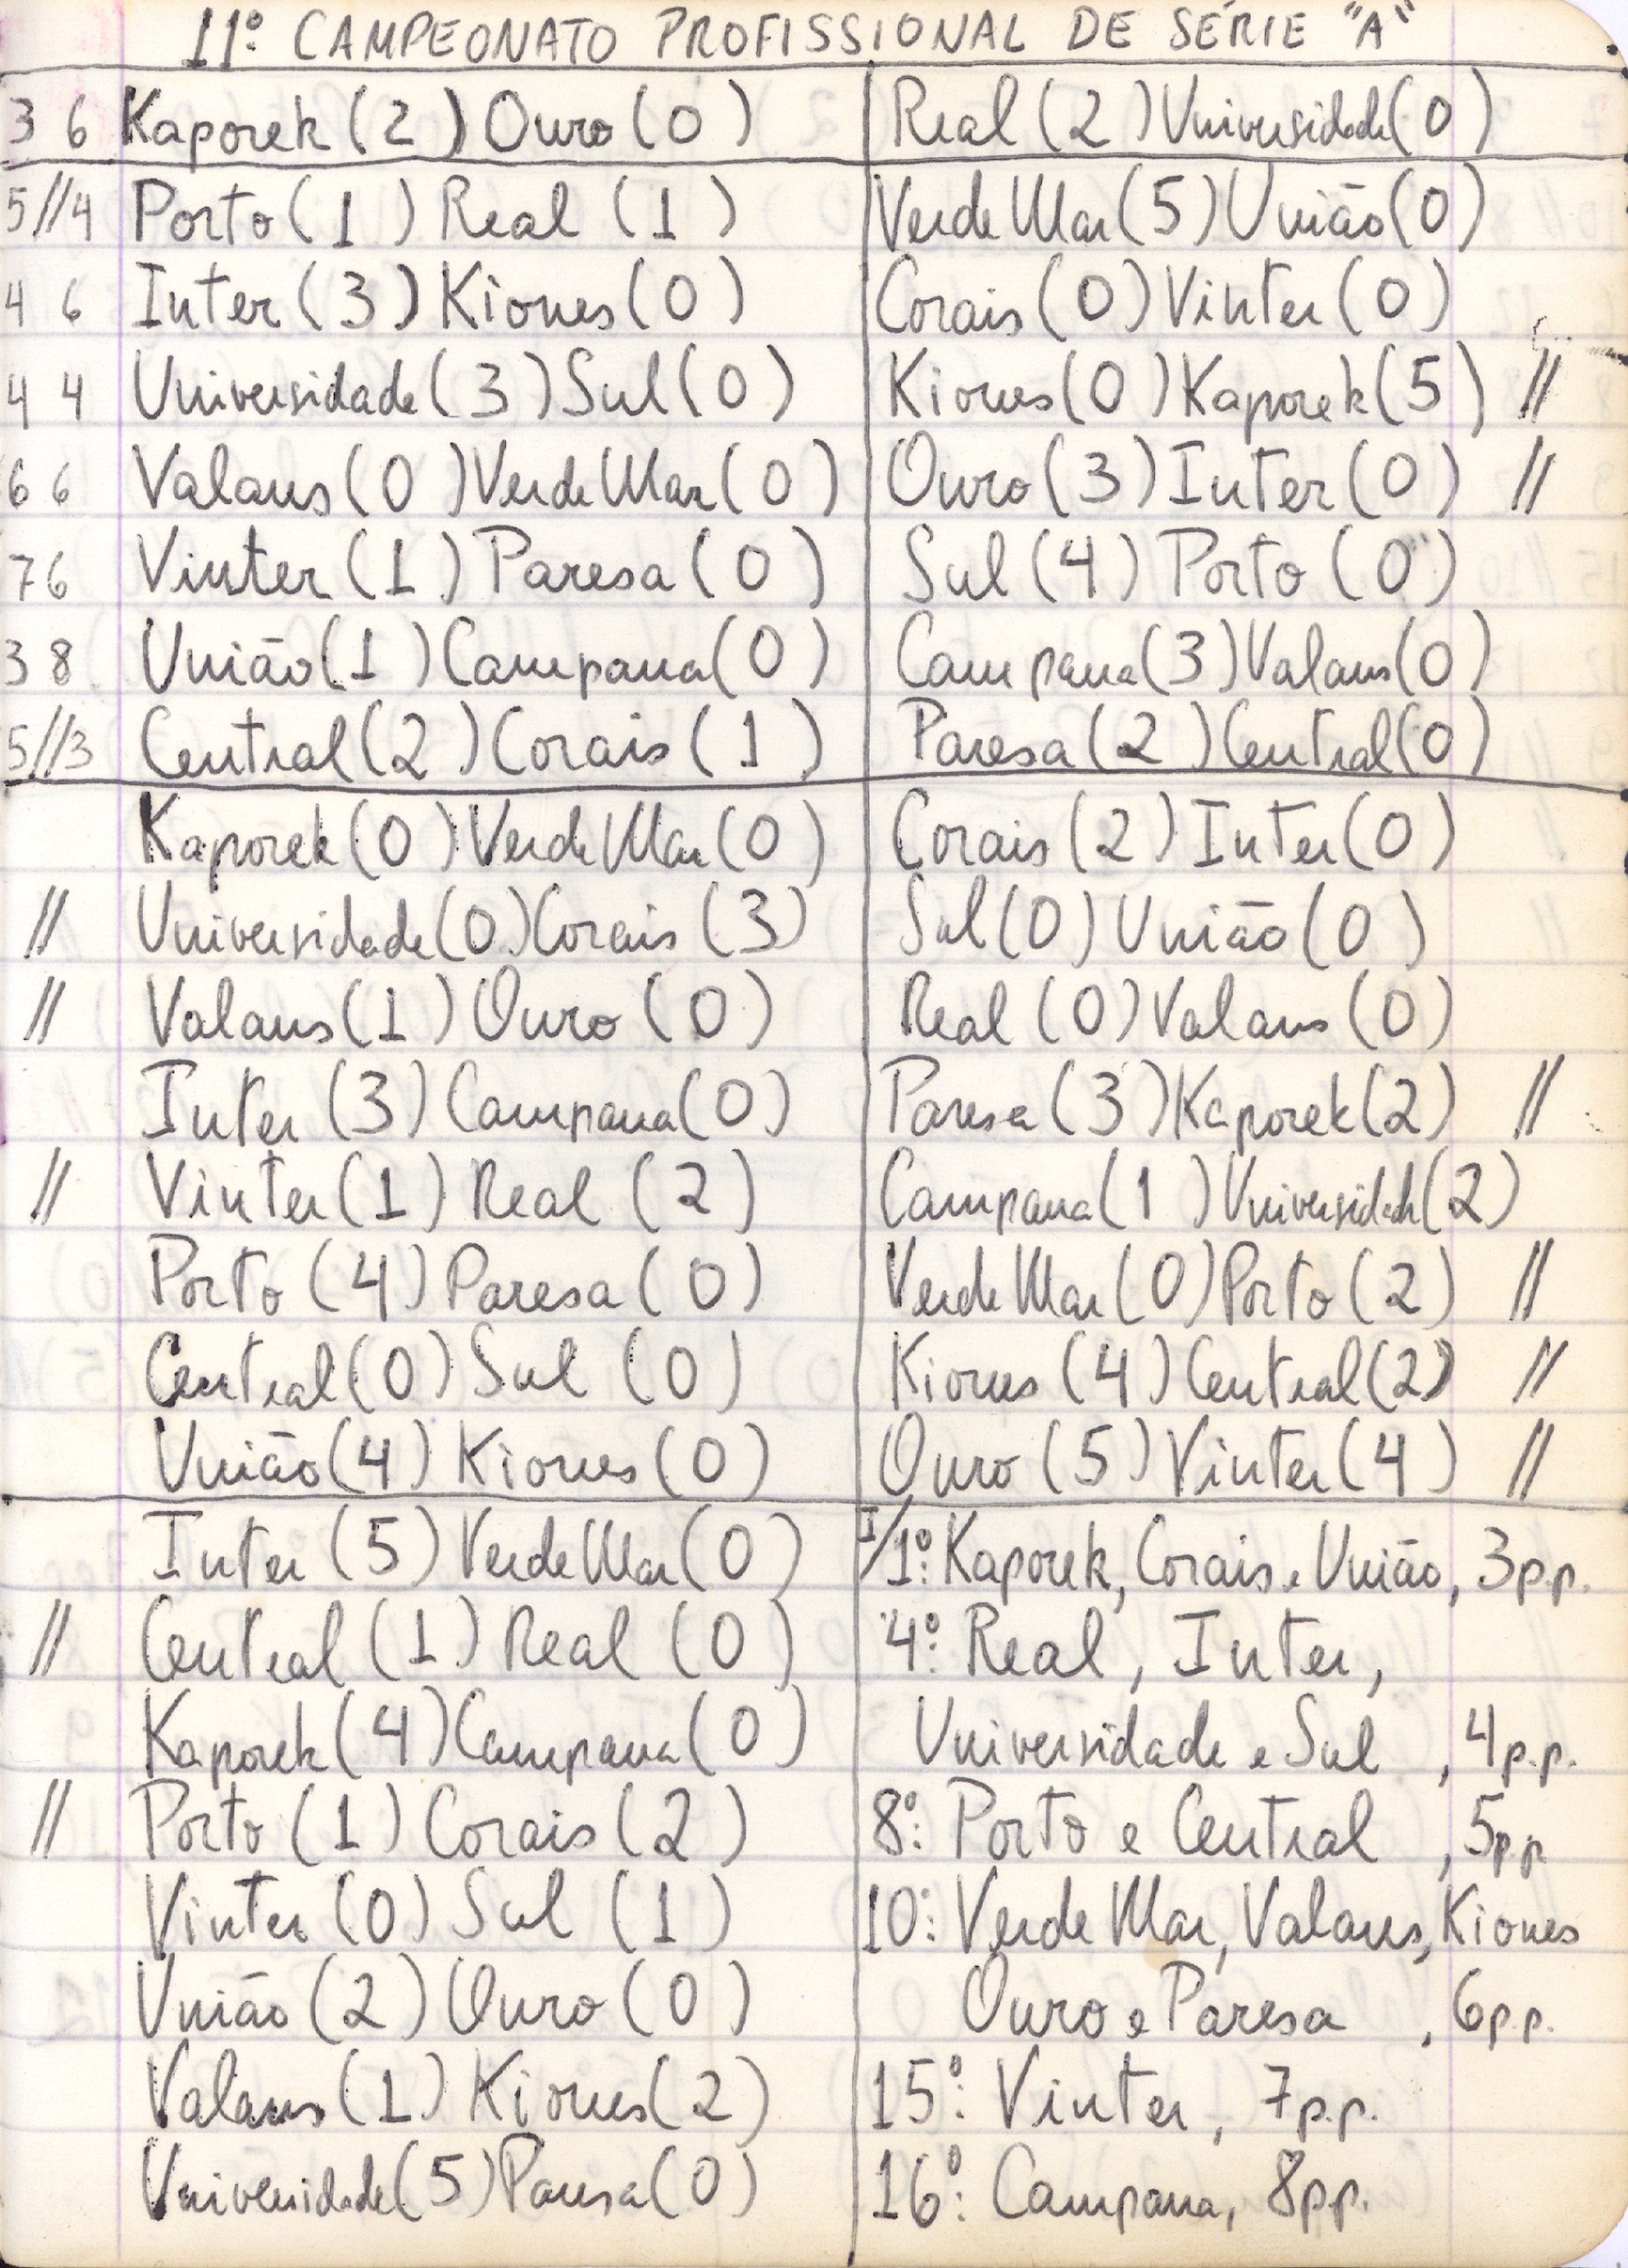 11º CAMPEONATO PROFISSIONAL DE SÉRIE "A"
3 6 Kaporek (2) Ouro (0)
5//4 Porto (1) Real (1)
4 6 Inter (3) Kiones (0)
4 4 Universidade (3) Sul (0)
6 6 Valans (0) Verde Mar (0)
7 6 Vinter (1) Paresa (0)
3 8 União (1) Campana (0)
5//3 Central (2) Corais (1)
Kaporek (0) Verde Mar (0)
// Universidade (0) Corais (3)
// Valans (1) Ouro (0)
Inter (3) Campana (0)
// Vinter (1) Real (2)
Porto (4) Paresa (0)
Central (0) Sul (0)
União (4) Kiones (0)
Inter (5) Verde Mar (0)
// Central (1) Real (0)
Kaporek (4) Campana (0)
// Porto (1) Corais (2)
Vinter (0) Sul (1)
União (2) Ouro (0)
Valans (1) Kiones (2)
Universidade (5) Paresa (0)
Real (2) Universidade (0)
Verde Mar (5) União (0)
Corais (0) Vinter (0)
Kiones (0) Kaporek (5) //
Ouro (3) Inter (0) //
Sul (4) Porto (0)
Campana (3) Valans (0)
Paresa (2) Central (0)
Corais (2) Inter (0)
Sul (0) União (0)
Real (0) Valans (0)
Paresa (3) Kaporek (2) //
Campana (1) Universidade (2)
Verde Mar (0) Porto (2) //
Kiones (4) Central (2) //
Ouro (5) Vinter (4) //
I/1º: Kaporek, Corais e União, 3p.p.
4º: Real, Inter,
Universidade e Sul, 4p.p.
8º: Porto e Central, 5p.p
10º: Verde Mar, Valans, Kiones
Ouro e Paresa, 6p.p.
15º: Vinter, 7p.p.
16º: Campana, 8p.p.